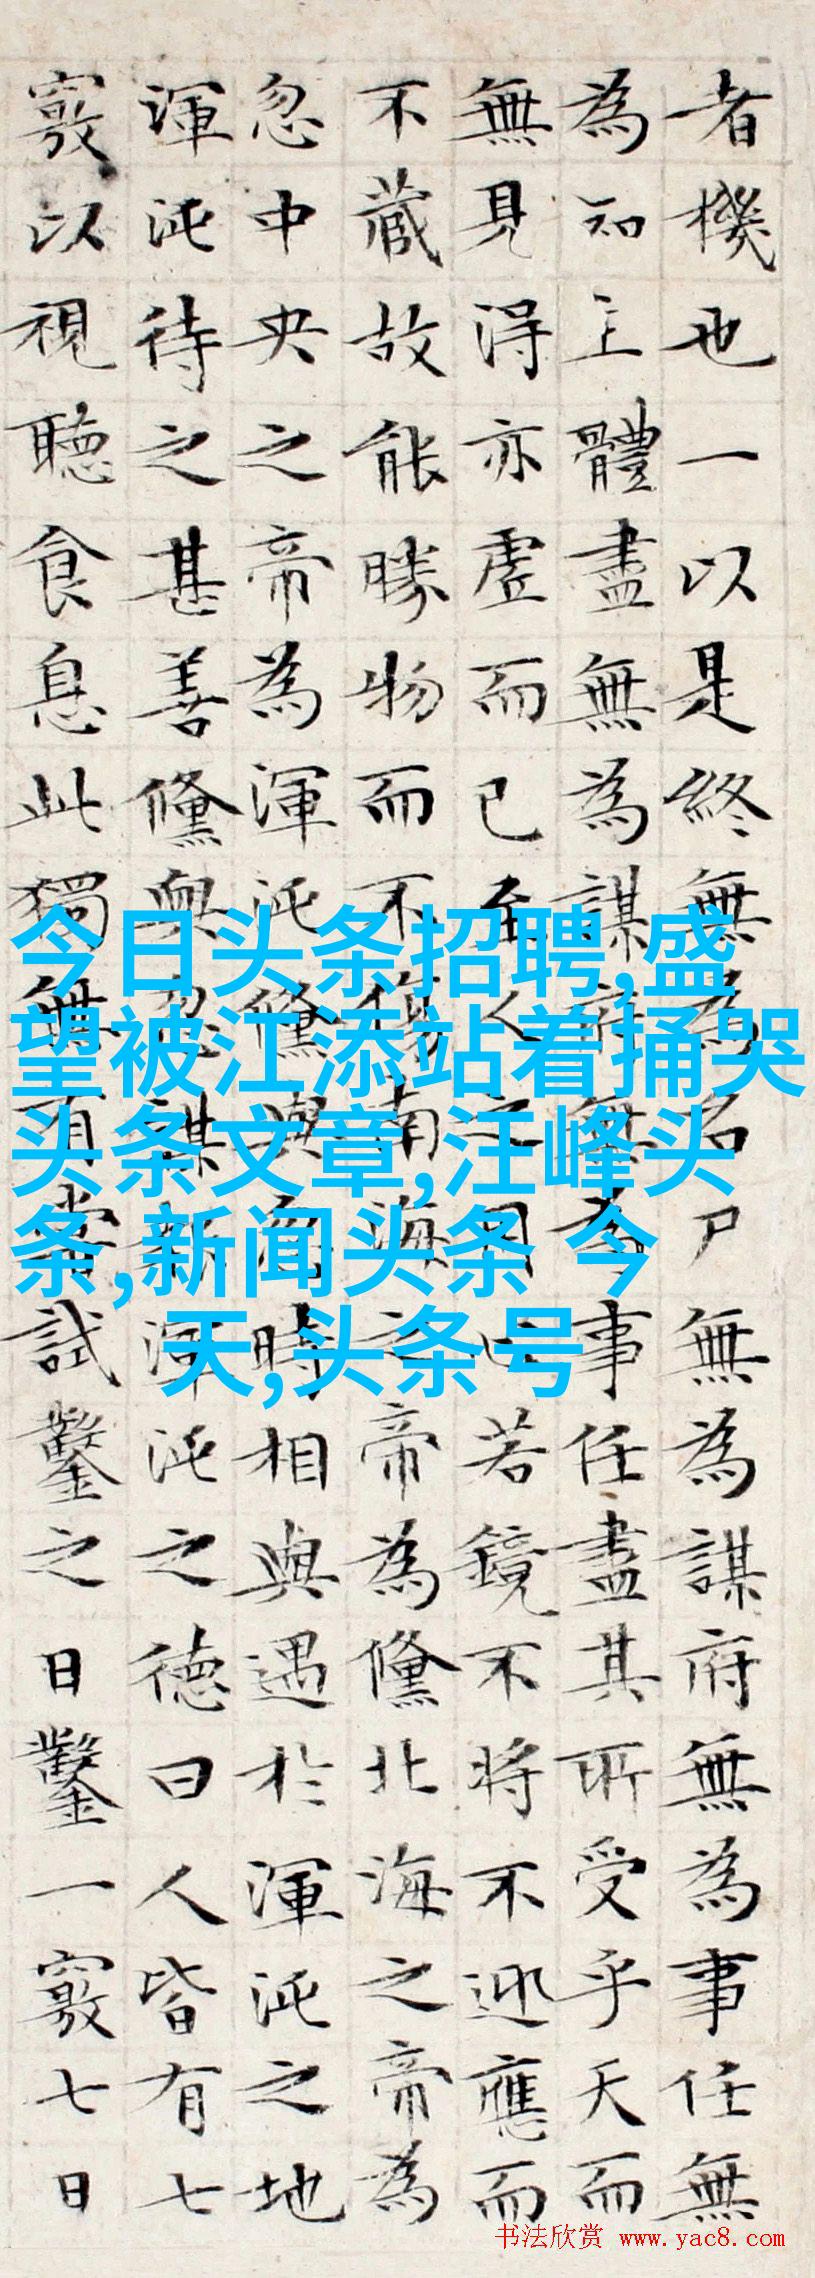 者機也一以是終無為名尸無為謀府無為事任無
為知主體盡無為謀府無為事任盡其所受乎天而
無見得亦虛而已至人之用心若鏡不將不迎應而
不藏故能勝物而不傷南海之帝為儵北海之帝為
忽中央之帝為渾沌儵與忽時相與遇於渾沌之地
渾沌待之甚善儵與忽謀報渾沌之德曰人皆有七
竅以視聽食息此獨無有嘗試鑿之日鑿一竅七日
今日头条招聘,盛
望被江添站着捅哭
头条文章,汪峰头
条,新闻头条 今
天,头条号
书法欣赏 www.yac8.com